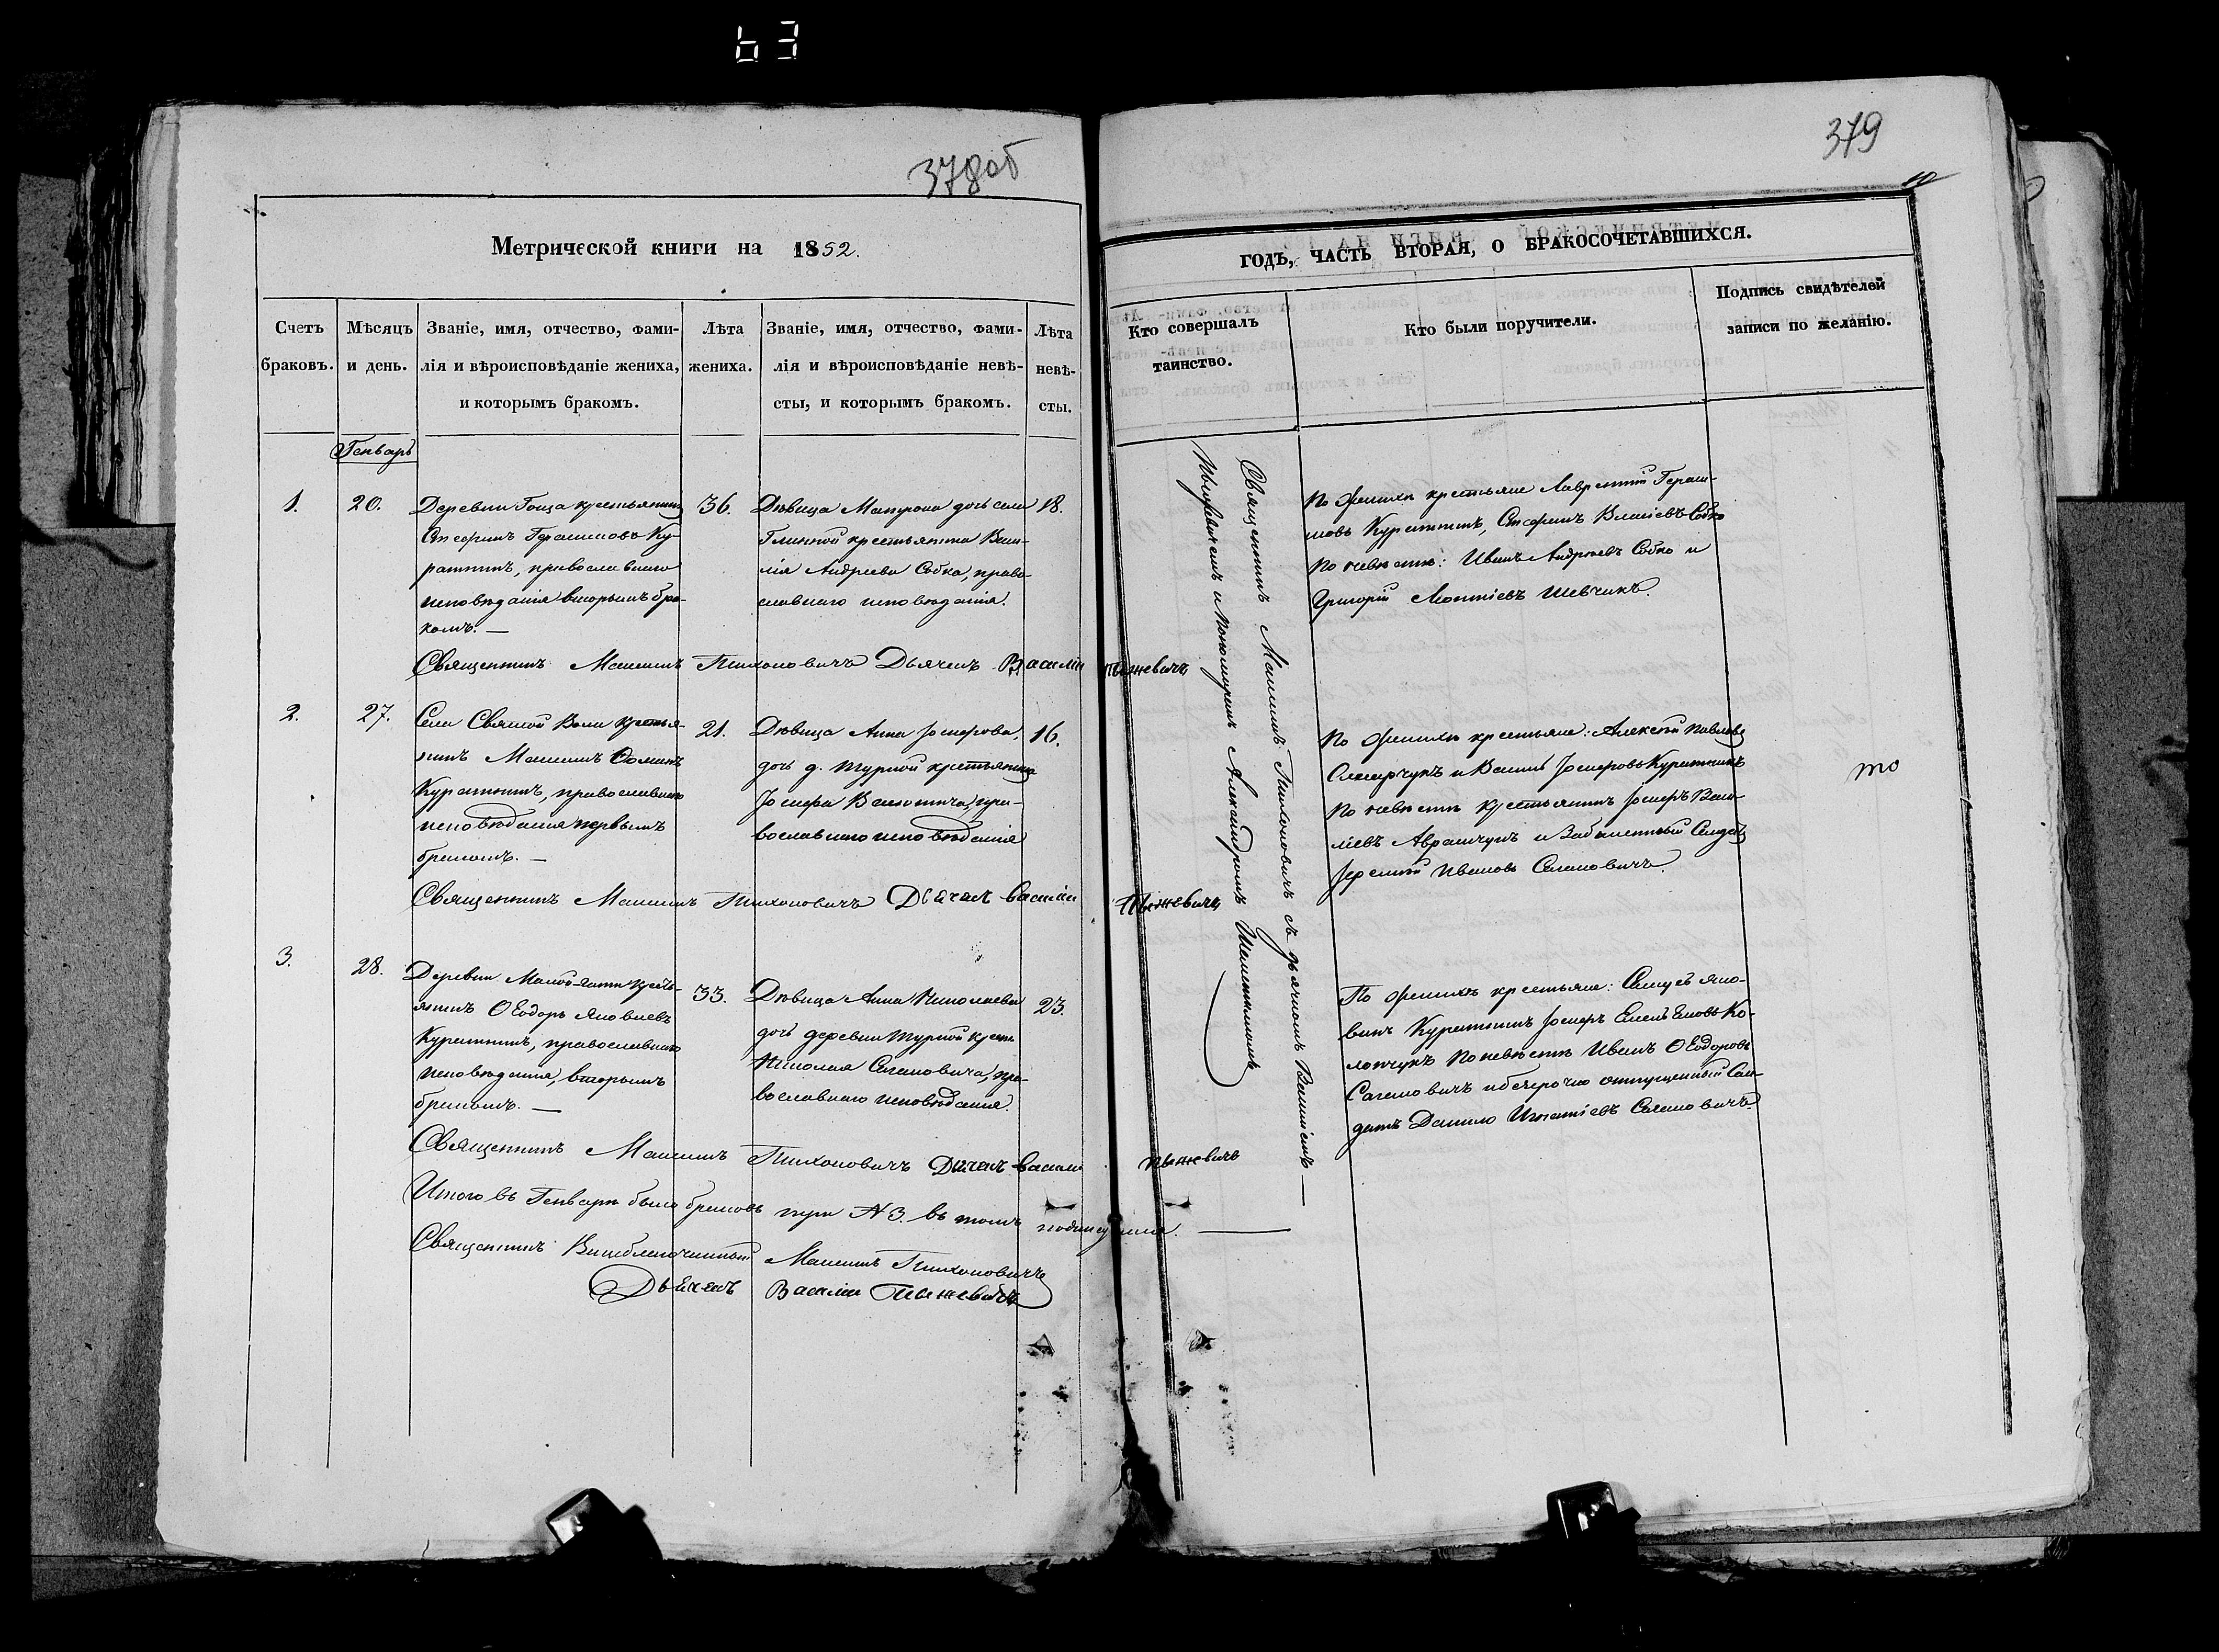 63
378об
Метрической книги на 1852.
Счетъ браковъ.
Мѣсяцъ и день.
Званіе, имя, отчество, фами-
лія и вѣроисповѣданіе жениха,
и которымъ бракомъ.
Лѣта
жениха.
Званіе, имя, отчество, фами-
лія и вѣроисповѣданіе невѣ-
сты, и которымъ бракомъ.
Лѣта
невѣ-
сты.
Генварь
1.
20.
Деревни Гоща крестьянинъ
Стефанъ Герасимовъ Ку-
ратникъ, православнаго
исповѣданія вторымъ бра-
комъ. —
36.
Дѣвица Матрона дочь села
Глинной крестьянина Васи-
лія Андреева Собка, право-
славнаго исповѣданія.
18.
Священникъ Максимъ Тихоновичъ Дьячекъ Василій
2.
27.
Села Святой Воли крестья-
нинъ Максимъ Фоминъ
Куратникъ, православнаго
исповѣданія первымъ
бракомъ. —
21.
Дѣвица Анна Іосифова,
дочь д. Турной крестьянина
Іосифа
вославнаго исповѣданія
16.
Священникъ Максимъ Тихоновичъ Дьячекъ Василій
3.
28.
Деревни Малой-Гати кресть-
янинъ Ѳеодоръ Яковлевъ
Куратникъ, православнаго
исповѣданія, вторымъ
бракомъ. —
33.
Дѣвица Анна Николаева
дочь деревни Турной крест.
Николая Сахановича, пра-
вославнаго исповѣданія.
23.
Священникъ Максимъ Тихоновичъ Дьячекъ Василій
Итого въ Генварѣ было браковъ три №3. въ томъ
Священникъ Вицеблагочинный Максимъ Тихоновичъ
Дьячекъ Василій
379
годъ, часть вторая, о бракосочетавшихся.
Кто совершалъ
таинство.
Кто были поручители.
Подпись свидѣтелей
записи по желанію.
Священникъ Максимъ Тихоновичъ съ дьячкомъ Василіемъ
и пономаремъ Александромъ
По женихѣ крестьяне Лаврентій Гераси-
мовъ Куратникъ, Стефанъ Василіевъ Собко
По невѣстѣ: Иванъ Андреевъ Собко и
Григорій Леонтіевъ Шевчикъ.
По женихѣ крестьяне: Алексѣй Павловъ
и Василій Іосифовъ Куратникъ
По невѣстѣ крестьянинъ Іосифъ Васи-
ліевъ Аврамчукъ и
Іеремій Ивановъ Сахановичъ.
то
По женихѣ крестьяне:
Куратникъ Іосифъ
По невѣстѣ Иванъ Ѳеодоровъ
Сахановичъ и безсрочно отпущенный Сол-
датъ Данило Игнатіевъ Сахановичъ.